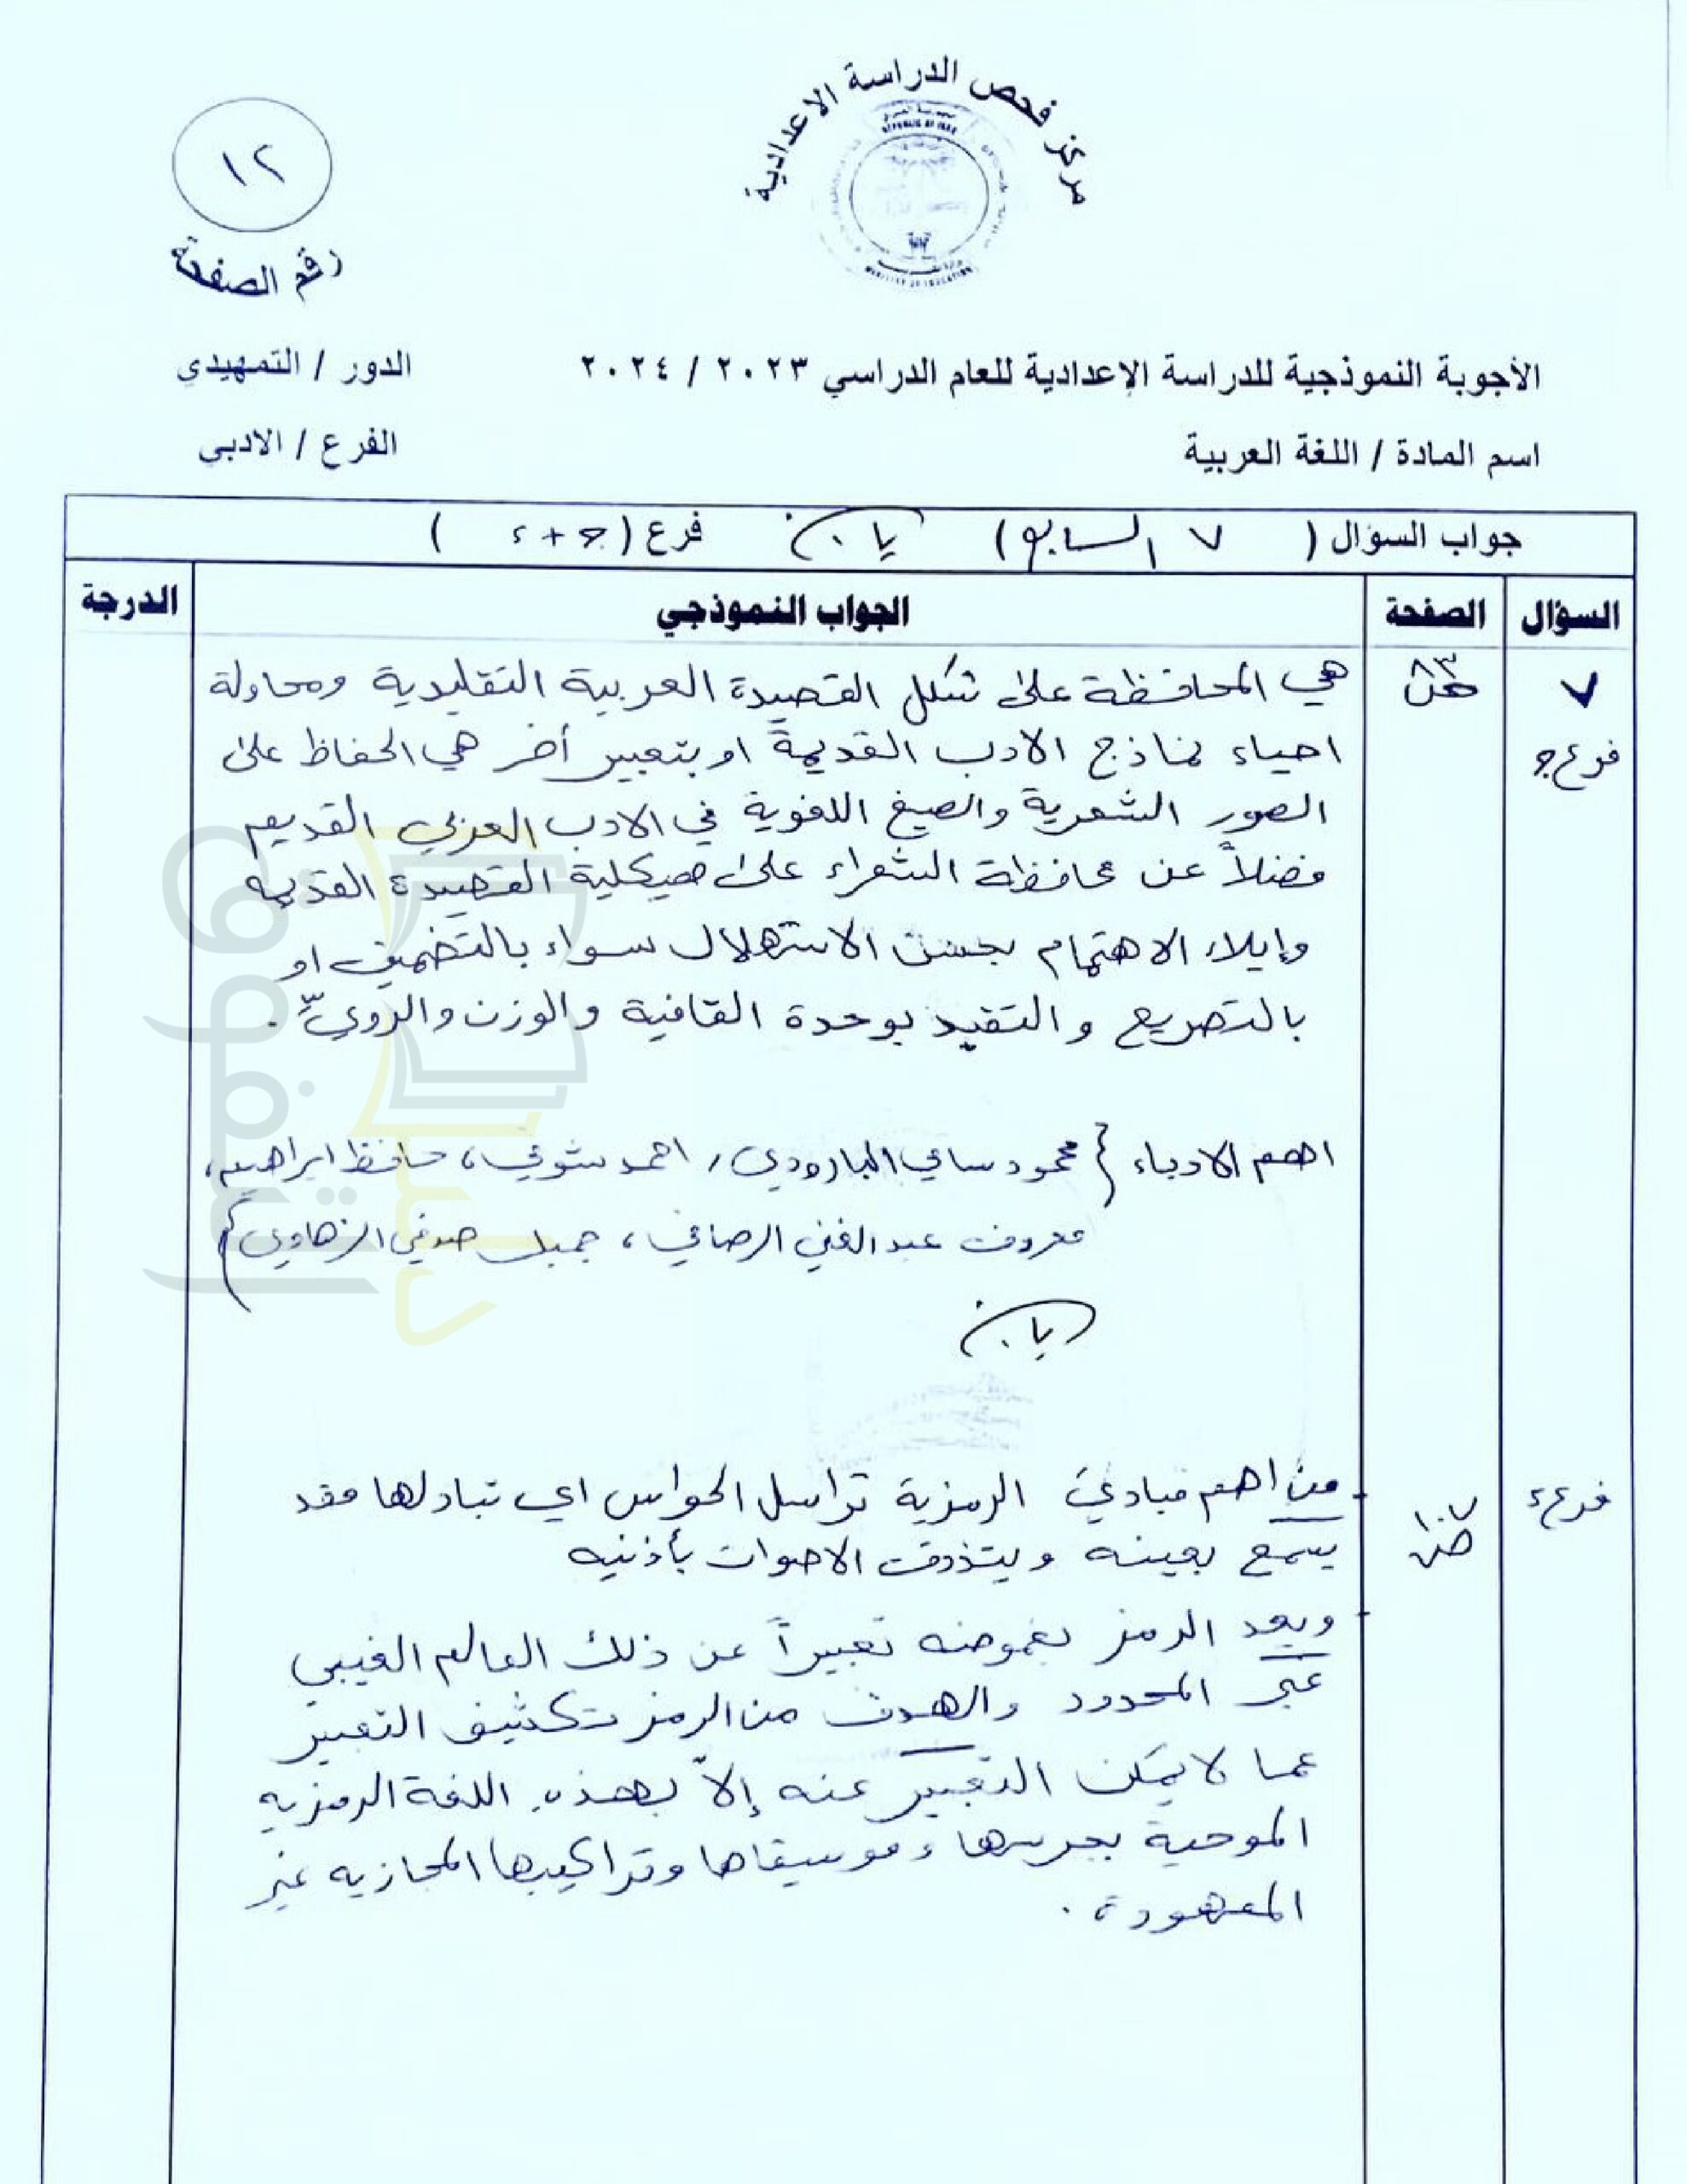 مركز فحص الدراسة الاعدادية
REPUBLIC OF IRAQ
MINISTRY OF EDUCATION
١٢
رقم الصفحة
الأجوبة النموذجية للدراسة الإعدادية للعام الدراسي ٢٠٢٣ / ٢٠٢٤
الدور / التمهيدي
اسم المادة / اللغة العربية
الفرع / الادبي
جواب السؤال ( ٧ السابع ) فرع ( جـ + د )
السؤال الصفحة الجواب النموذجي الدرجة
٧
فرع جـ
ص ٨٣
هي المحافظة على شكل القصيدة العربية التقليدية ومحاولة
احياء نماذج الادب القديمة او بتعبير أخر هي الحفاظ على
الصور الشعرية والصيغ اللغوية في الادب العربي القديم
فضلاً عن محافظة الشعراء على هيكلية القصيدة القديمه
وإيلاء الاهتمام بحسن الاستهلال سواء بالتضمين او
بالتصريع والتقيد بوحدة القافية والوزن والرويّ .
اهم الادباء { محمود سامي البارودي ، احمد شوقي ، حافظ ابراهيم ،
معروف عبد الغني الرصافي ، جميل صدقي الزهاوي }
فرع د
ص ١٠٧
- من اهم مبادئ الرمزية تراسل الحواس اي تبادلها فقد
يسمع بعينه ويتذوق الاصوات بأذنيه
- ويعد الرمز بغموضه تعبيراً عن ذلك العالم الغيبي
غير المحدود والهدف من الرمز تكثيف التعبير
عما لا يمكن التعبير عنه إلاّ بهذه اللغة الرمزيه
الموحية بجرسها وموسيقاها وتراكيبها المجازيه غير
المعهودة .